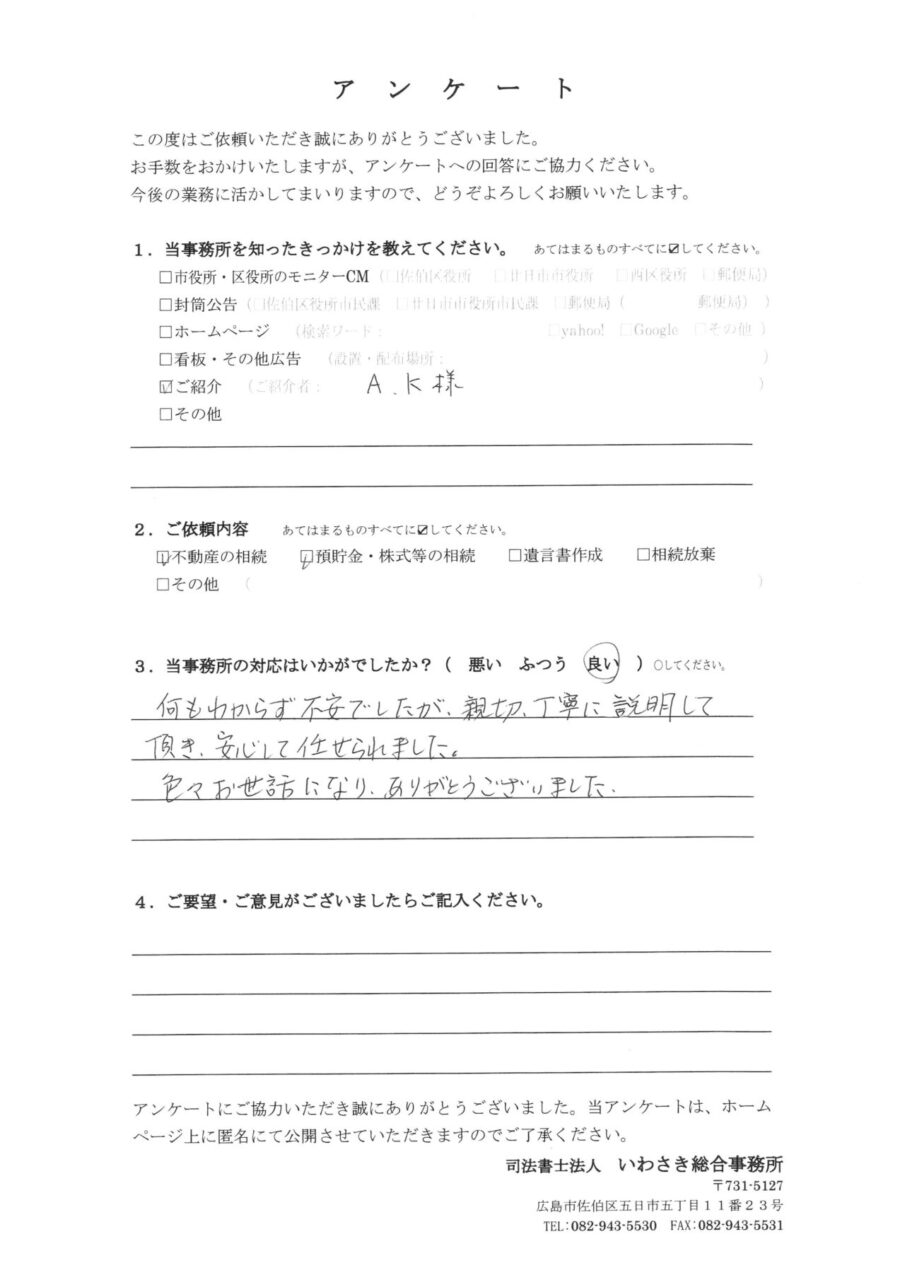 アンケート
この度はご依頼いただき誠にありがとうございました。
お手数をおかけいたしますが、アンケートへの回答にご協力ください。
今後の業務に活かしてまいりますので、どうぞよろしくお願いいたします。
1．当事務所を知ったきっかけを教えてください。 あてはまるものすべてに☑してください。
□市役所・区役所のモニターCM（□佐伯区役所 □廿日市市役所 □西区役所 □郵便局）
□封筒公告（□佐伯区役所市民課 □廿日市市役所市民課 □郵便局（ 郵便局））
□ホームページ （検索ワード： □yahoo! □Google □その他 ）
□看板・その他広告 （設置・配布場所： ）
☑ご紹介 （ご紹介者： A.K様 ）
□その他
2．ご依頼内容 あてはまるものすべてに☑してください。
☑不動産の相続 ☑預貯金・株式等の相続 □遺言書作成 □相続放棄
□その他 （ ）
3．当事務所の対応はいかがでしたか？（ 悪い ふつう 良い ）○してください。
何もわからず不安でしたが、親切、丁寧に説明して
頂き、安心して任せられました。
色々お世話になり、ありがとうございました．
4．ご要望・ご意見がございましたらご記入ください。
アンケートにご協力いただき誠にありがとうございました。当アンケートは、ホーム
ページ上に匿名にて公開させていただきますのでご了承ください。
司法書士法人 いわさき総合事務所
〒731-5127
広島市佐伯区五日市五丁目１１番２３号
TEL：082-943-5530 FAX：082-943-5531